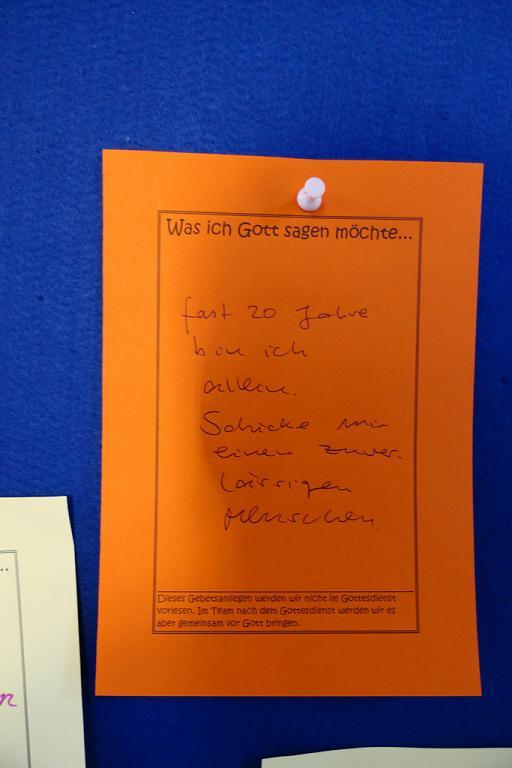 Was ich Gott sagen möchte...
fast 20 Jahre
bin ich
allein.
Schicke mir
einen zuver-
lässigen
Menschen.
Dieses Gebetsanliegen werden wir nicht im Gottesdienst
vorlesen. Im Team nach dem Gottesdienst werden wir es
aber gemeinsam vor Gott bringen.
...
n